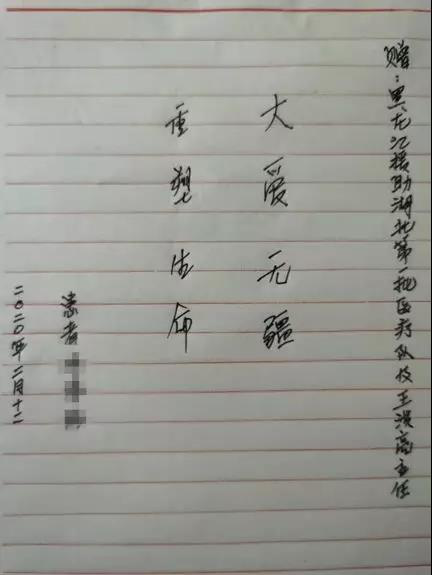 赠：黑龙江援助湖北第一批医疗队及王洪亮主任
大爱无疆
重塑生命
患者
二〇二〇年二月十二